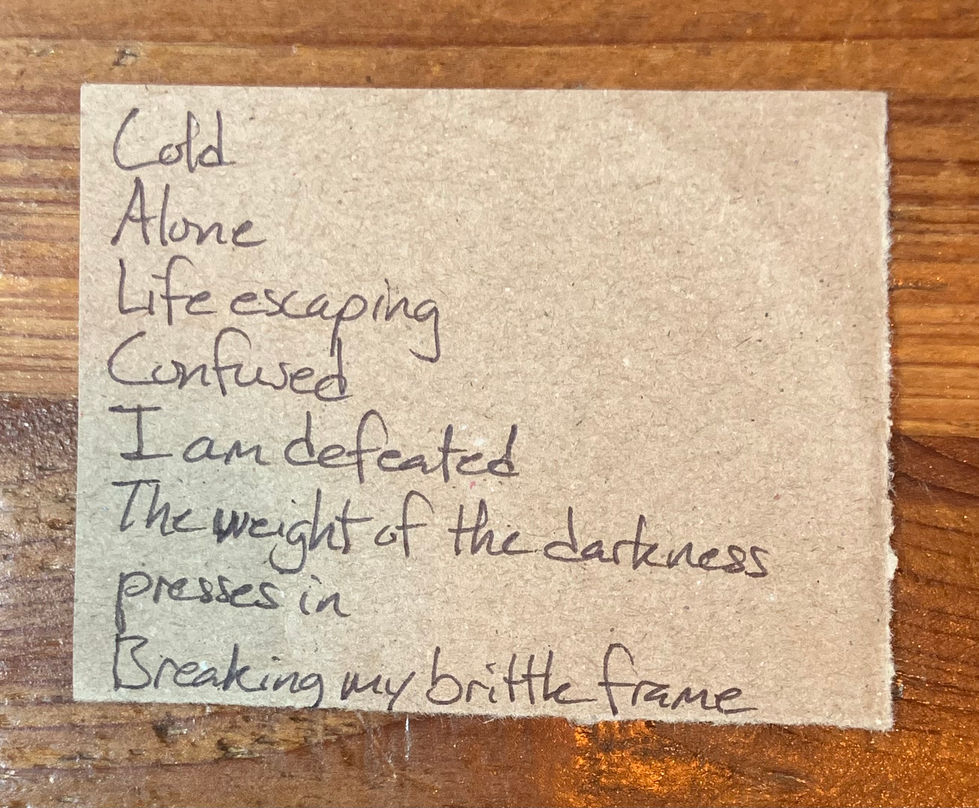 Cold
Alone
Life escaping
Confused
I am defeated
The weight of the darkness
presses in
Breaking my brittle frame